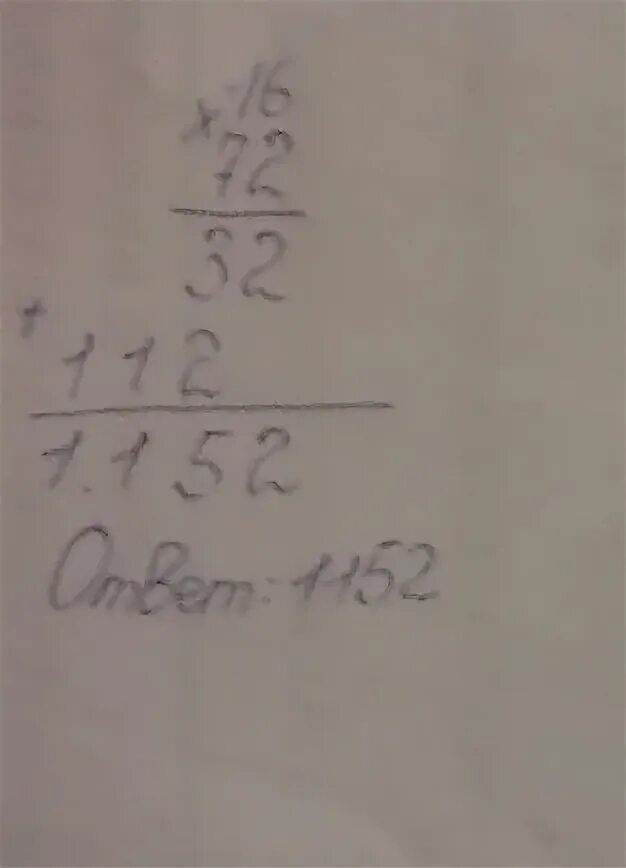 16
× 72
32
+ 112
1.152
Ответ: 1152